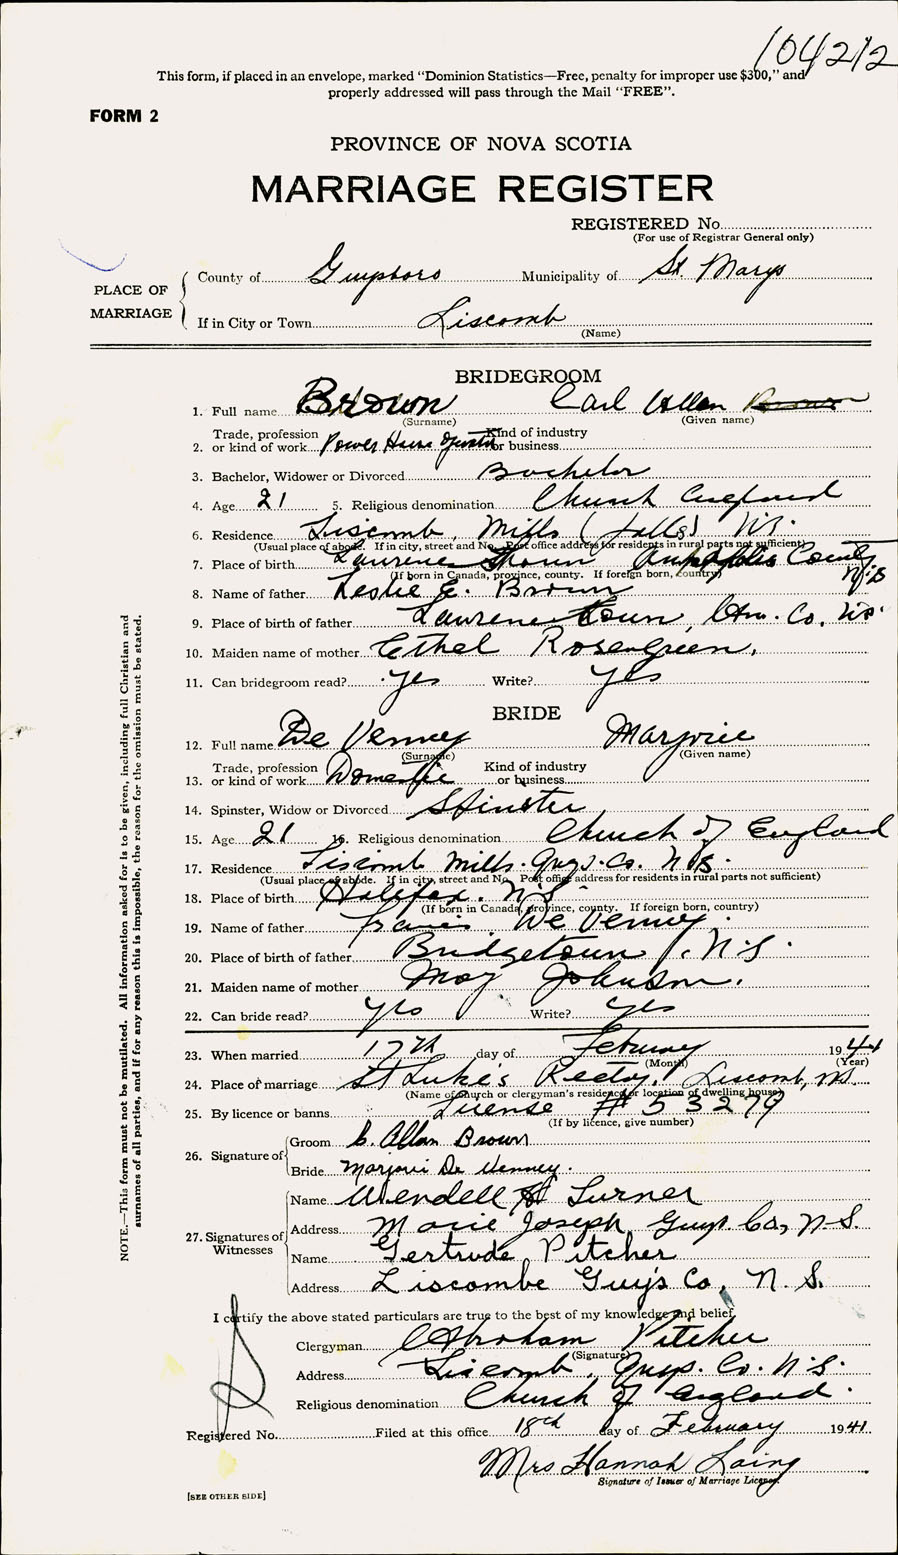 104212
This form, if placed in an envelope, marked "Dominion Statistics—Free, penalty for improper use $300," and
properly addressed will pass through the Mail "FREE".
FORM 2
PROVINCE OF NOVA SCOTIA
MARRIAGE REGISTER
REGISTERED No.
(For use of Registrar General only)
PLACE OF MARRIAGE
County of Guysboro Municipality of St. Marys
If in City or Town Liscomb
(Name)
BRIDEGROOM
1. Full name Brown Carl Allan Brown
(Surname) (Given name)
2. Trade, profession or kind of work Power House Kind of industry or business
3. Bachelor, Widower or Divorced Bachelor
4. Age 21 5. Religious denomination Church England
6. Residence Liscomb, Mills (falls) N.S.
(Usual place of abode. If in city, street and No. Post office address for residents in rural parts not sufficient)
7. Place of birth Laurence Town Annapolis County N.S
(If born in Canada, province, county. If foreign born, country)
8. Name of father Leslie E. Brown
9. Place of birth of father Laurence town, Ann. Co. N.S.
10. Maiden name of mother Ethel Rosengreen.
11. Can bridegroom read? yes Write? yes
BRIDE
12. Full name De Venney Marjorie
(Surname) (Given name)
13. Trade, profession or kind of work Domestic Kind of industry or business
14. Spinster, Widow or Divorced Spinster
15. Age 21 16. Religious denomination Church of England
17. Residence Liscomb Mills. Guys. Co. N.S.
(Usual place of abode. If in city, street and No. Post office address for residents in rural parts not sufficient)
18. Place of birth Halifax. N.S.
(If born in Canada, province, county. If foreign born, country)
19. Name of father Francis De Venney.
20. Place of birth of father Bridgetown, N.S.
21. Maiden name of mother May Johnson.
22. Can bride read? yes Write? yes
23. When married 17th day of February 1941
(Month) (Year)
24. Place of marriage St Luke's Rectory, Liscomb, N.S.
(Name of church or clergyman's residence or location of dwelling house)
25. By licence or banns License # 53279
(If by licence, give number)
26. Signature of Groom C. Allan Brown
Bride Marjorie De Venney.
27. Signatures of Witnesses
Name Wendell H Turner
Address Marie Joseph, Guys. Co, N-S.
Name Gertrude Pitcher
Address Liscombe Guy's Co, N. S.
I certify the above stated particulars are true to the best of my knowledge and belief.
Clergyman Abraham Pitcher
(Signature)
Address Liscomb, Guys. Co. N.S.
Religious denomination Church of England.
Registered No. Filed at this office 18th day of February 1941
Mrs Hannah Laing
Signature of Issuer of Marriage License.
[SEE OTHER SIDE]
NOTE.—This form must not be mutilated. All information asked for is to be given, including full Christian and
surnames of all parties, and if for any reason this is impossible, the reason for the omission must be stated.